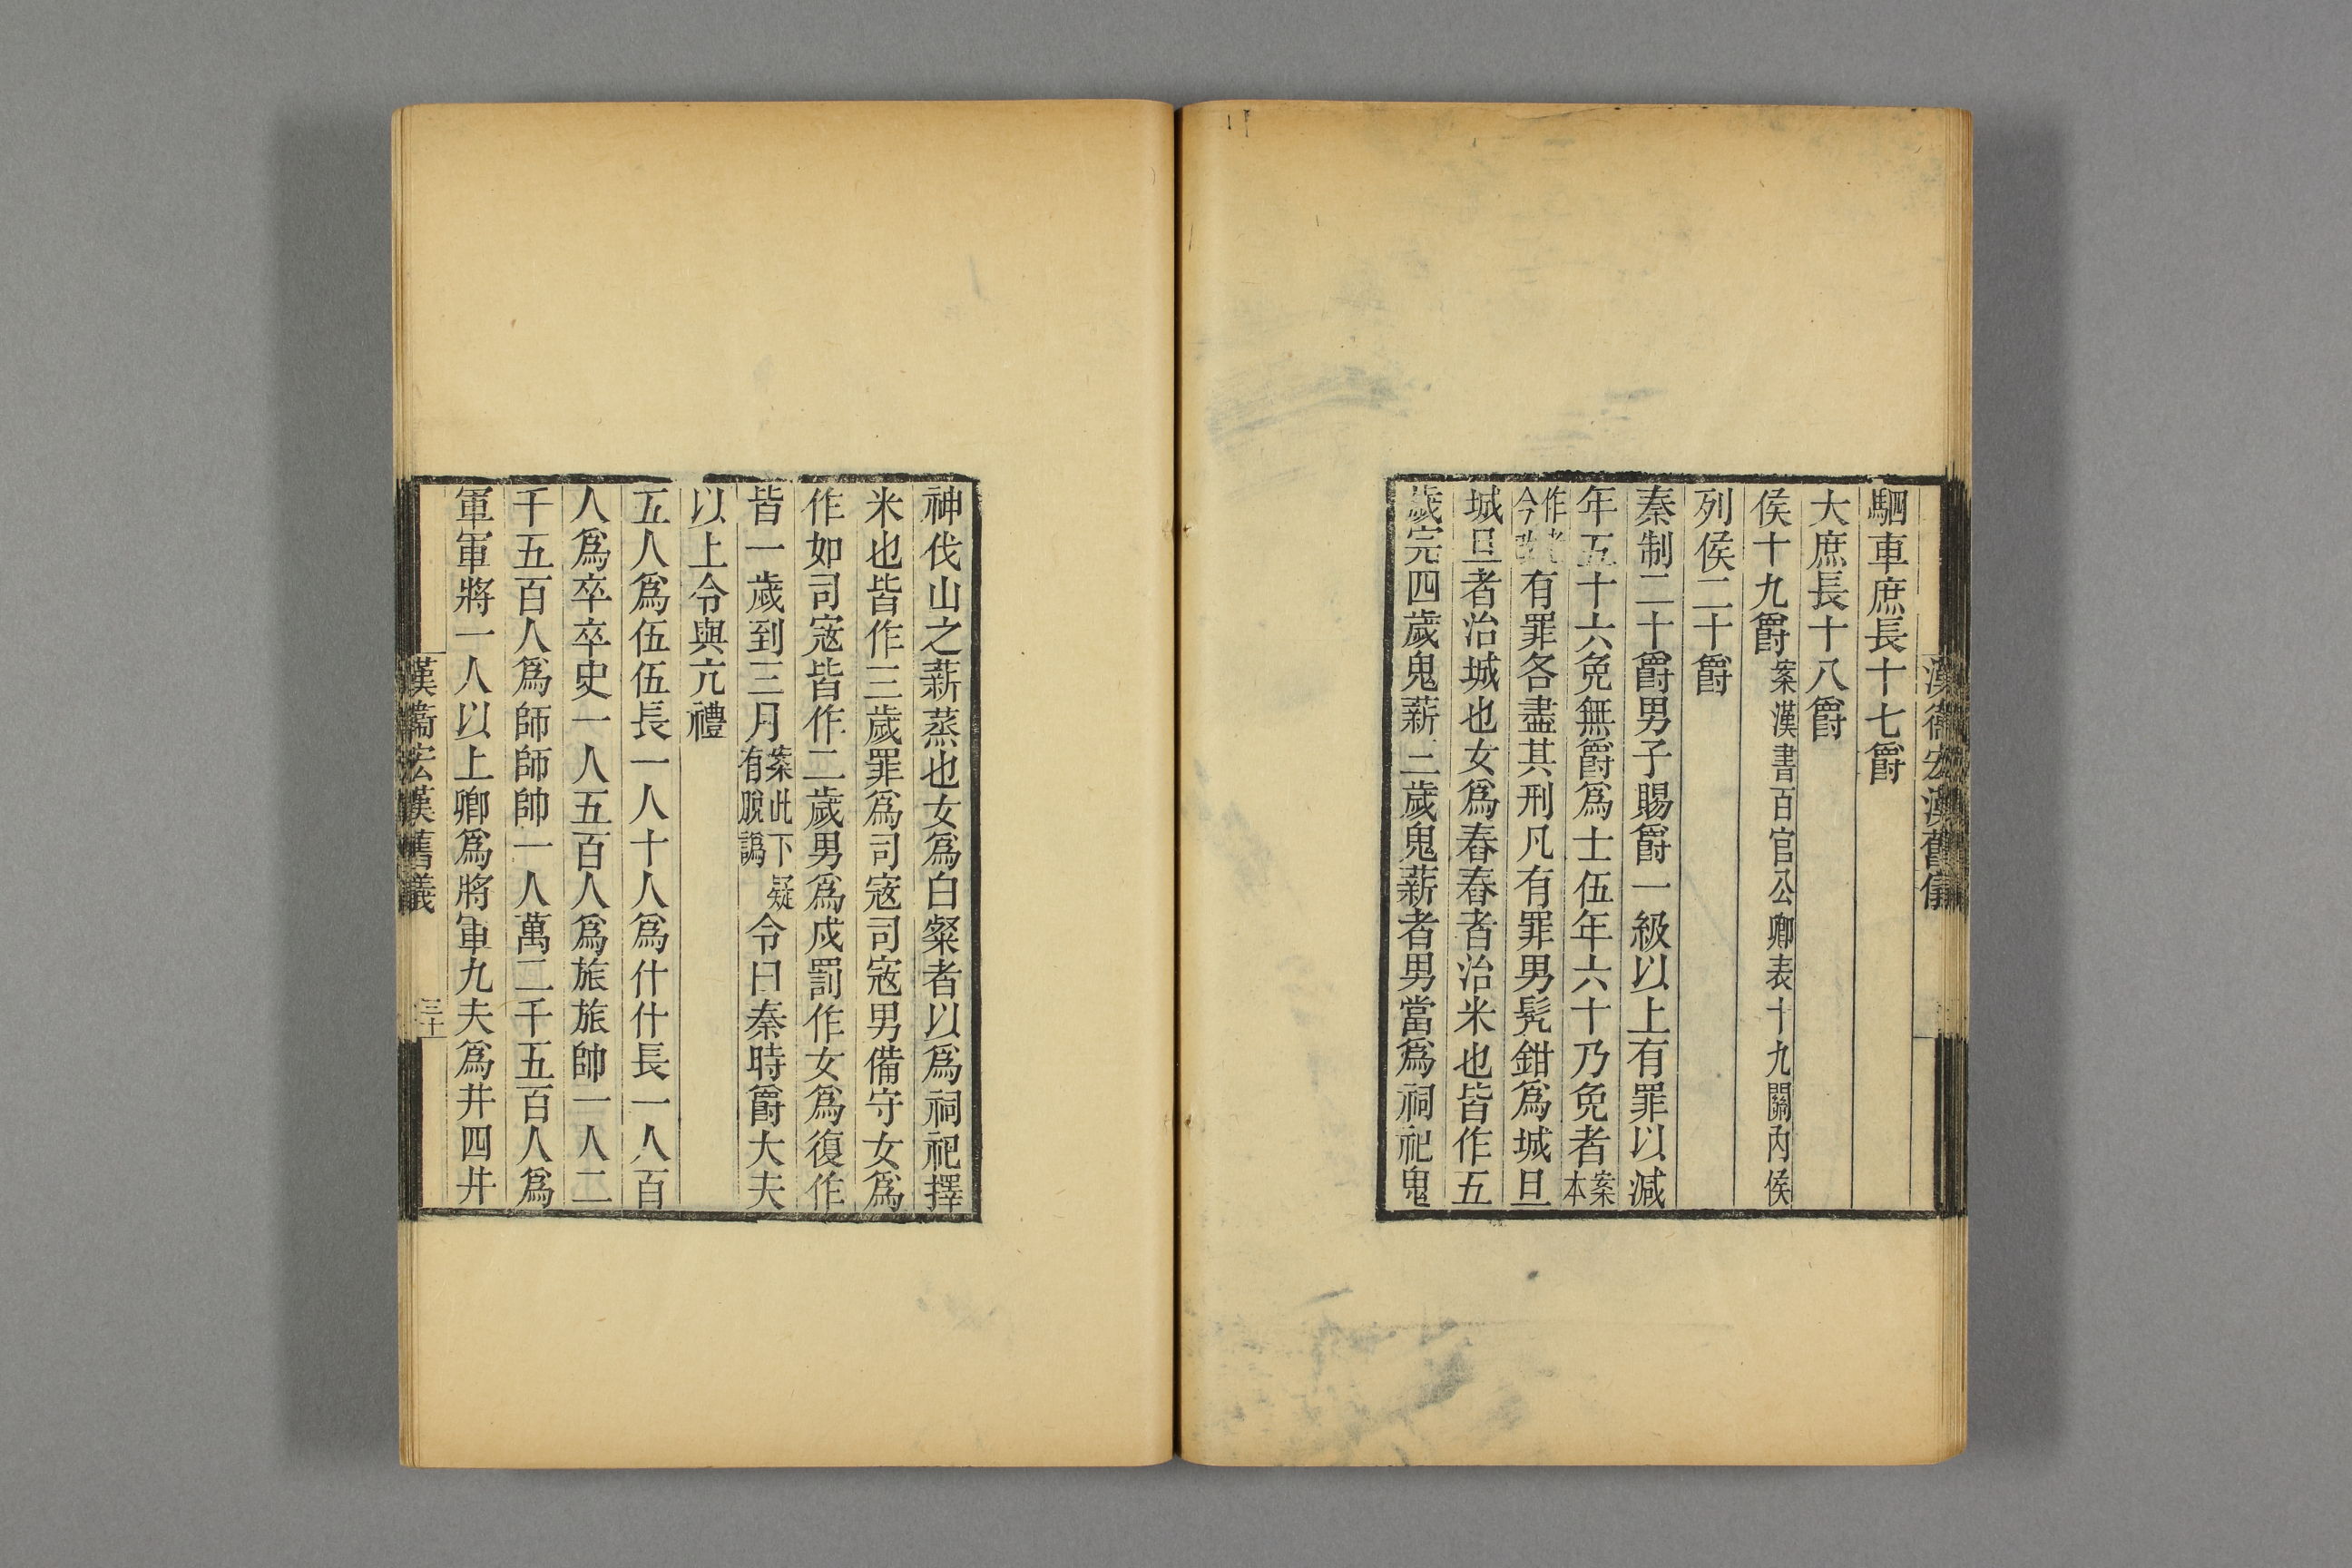 駟車庶長十七爵
大庶長十八爵
侯十九爵案漢書百官公卿表十九關內侯
列侯二十爵
秦制二十爵男子賜爵一級以上有罪以減
年五十六免無爵爲士伍年六十乃免者案本
作者今改有罪各盡其刑凡有罪男髡鉗爲城旦
城旦者治城也女爲舂舂者治米也皆作五
歲完四歲鬼薪三歲鬼薪者男當爲祠祀鬼
漢衞宏漢舊儀
神伐山之薪蒸也女爲白粲者以爲祠祀擇
米也皆作三歲罪爲司寇司寇男備守女爲
作如司寇皆作二歲男爲戍罰作女爲復作
皆一歲到三月案此下疑有脫譌令曰秦時爵大夫
以上令與亢禮
五人爲伍伍長一人十人爲什什長一人百
人爲卒卒史一人五百人爲旅旅帥一人二
千五百人爲師師帥一人萬二千五百人爲
軍軍將一人以上卿爲將軍九夫爲井四井
漢衞宏漢舊儀 三十